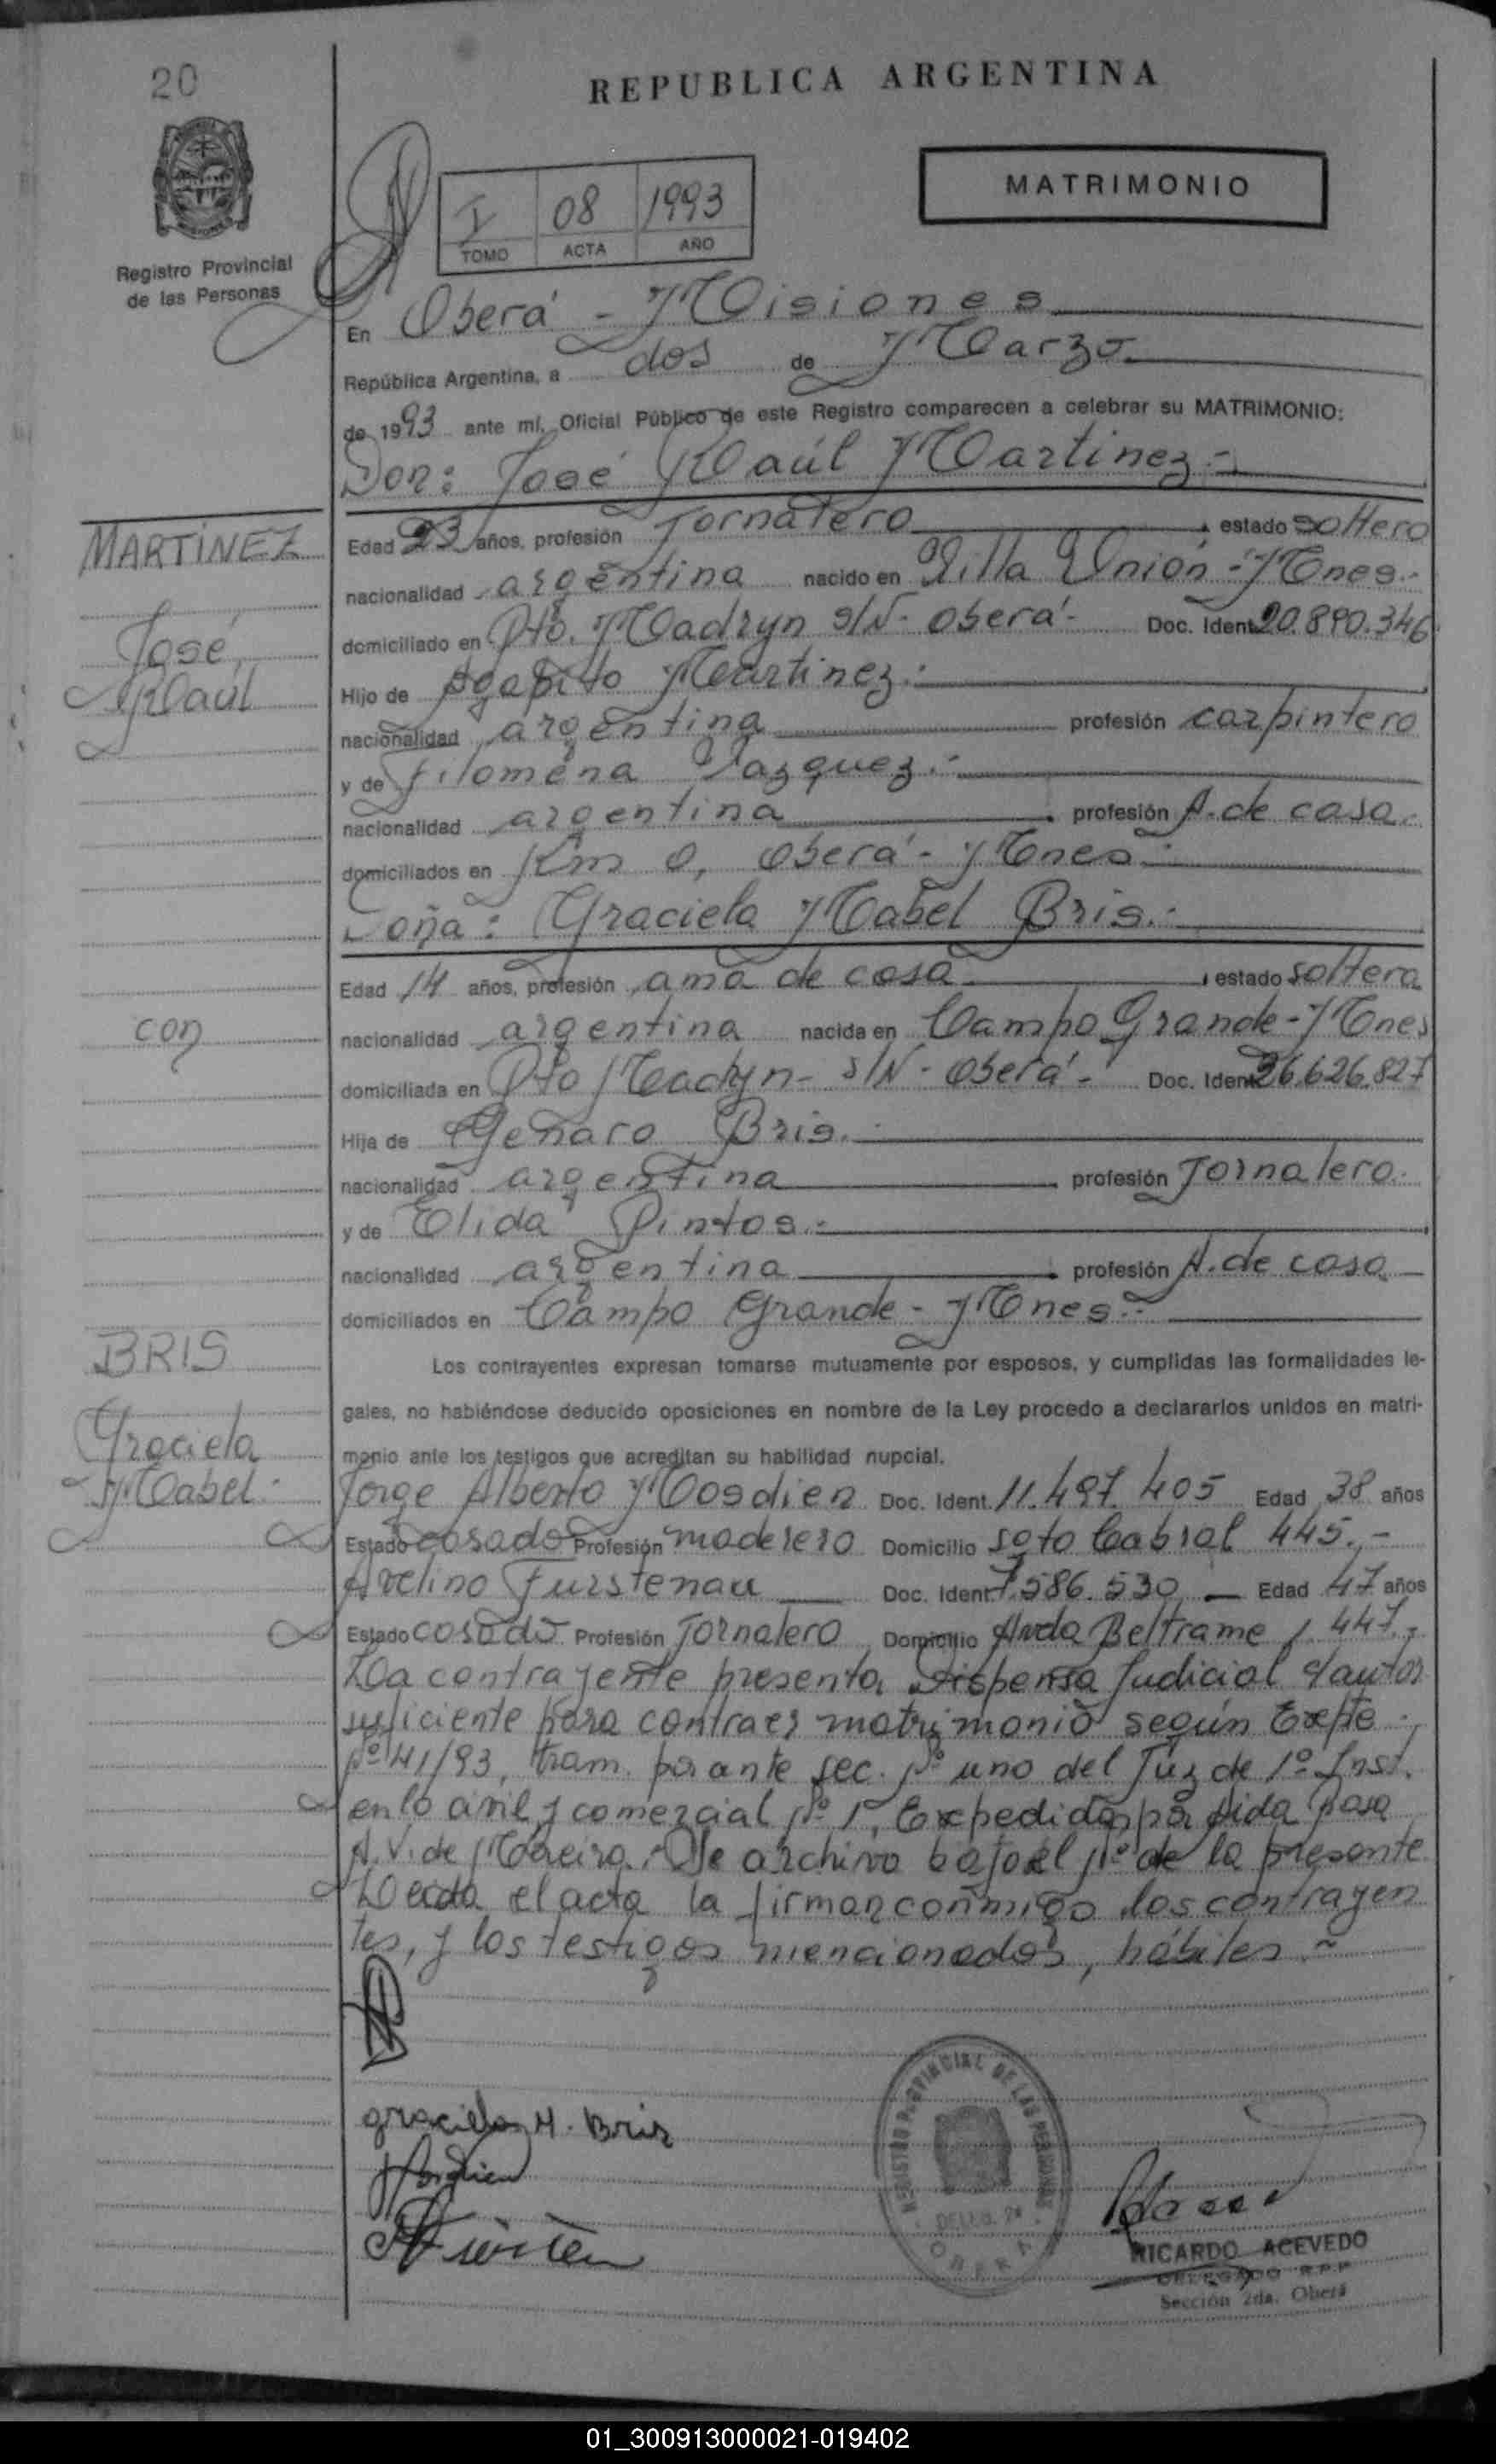 20
REPUBLICA ARGENTINA
MATRIMONIO
I 08 1993
TOMO ACTA AÑO
Registro Provincial
de las Personas
En Oberá - Misiones
República Argentina, a dos de Marzo
de 1993 ante mí, Oficial Público de este Registro comparecen a celebrar su MATRIMONIO:
Don: José Raúl Martinez.-
MARTINEZ
José
Raúl
Edad 23 años, profesión Jornalero, estado soltero
nacionalidad argentina nacido en Villa Unión - Mnes.-
domiciliado en Pto. Madryn s/N - Oberá - Doc. Ident. 20.890.346
Hijo de Agapito Martinez.-
nacionalidad argentina profesión carpintero
y de Filomena Vazquez.-
nacionalidad argentina profesión A. de casa.
domiciliados en Km 0, Oberá - Mnes.-
Doña: Graciela Mabel Bris.-
con
Edad 14 años, profesión ama de casa, estado soltera
nacionalidad argentina nacida en Campo Grande - Mnes
domiciliada en Pto Madryn - s/N - Oberá - Doc. Ident. 26.626.827
Hija de Genaro Bris.-
nacionalidad argentina profesión Jornalero.
y de Elida Pintos.-
nacionalidad argentina profesión A. de casa
domiciliados en Campo Grande - Mnes.-
BRIS
Graciela
Mabel.
Los contrayentes expresan tomarse mutuamente por esposos, y cumplidas las formalidades le-
gales, no habiéndose deducido oposiciones en nombre de la Ley procedo a declararlos unidos en matri-
monio ante los testigos que acreditan su habilidad nupcial.
Jorge Alberto Mosdien Doc. Ident. 11.497.405 Edad 38 años
Estado casado Profesión maderero Domicilio Soto Cabral 445.-
Avelino Furstenau Doc. Ident. 7.586.530 Edad 47 años
Estado casado Profesión Jornalero Domicilio Avda Beltrame 447.-
La contrayente presenta Dispensa Judicial
suficiente para contraer matrimonio según Expte.
Nº 41/93, tram. por ante sec. Nº uno del Juz de 1º Inst.
en lo civil y comercial Nº 1, Expedida por Aida
A.V. de Moreira. Se archiva bajo el Nº de la presente
Leida el acta la firman conmigo los contrayen
tes, y los testigos mencionados, hábiles
Graciela M. Bris
REGISTRO PROVINCIAL DE LAS PERSONAS
OBERA
RICARDO ACEVEDO
DELEGADO R.P.P.
Sección 2da. Oberá
01_300913000021-019402